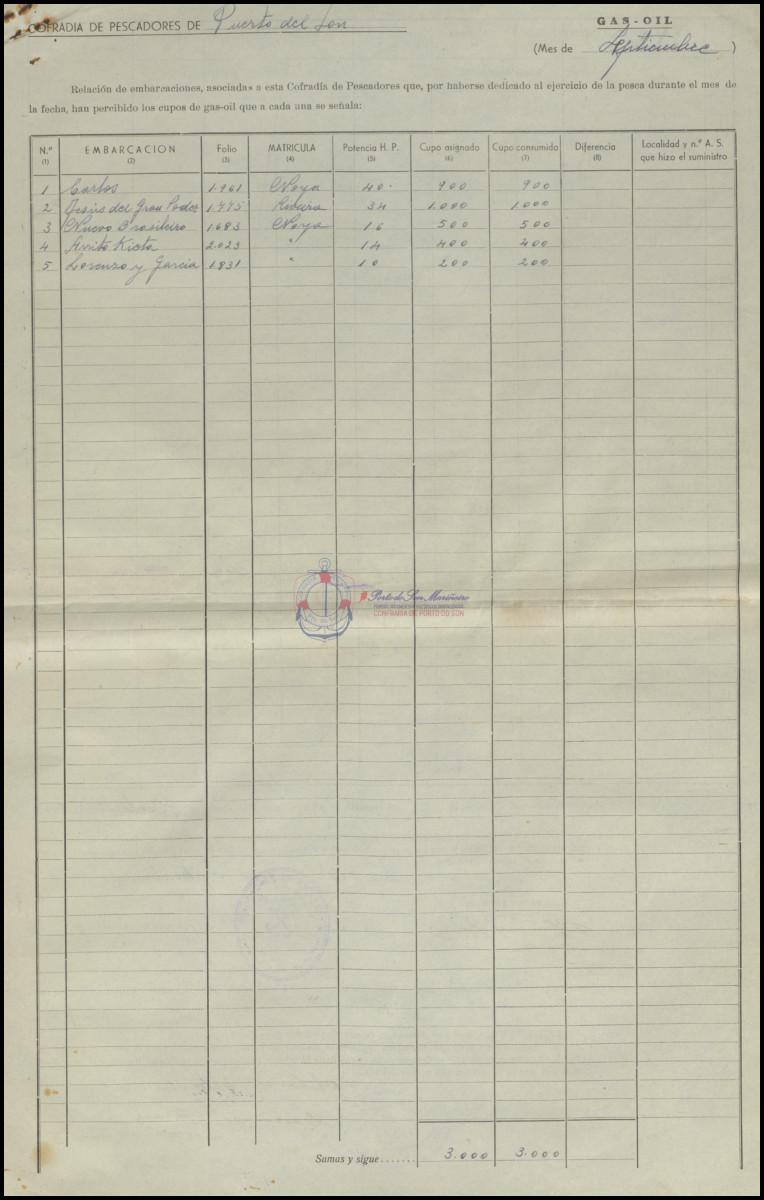 COFRADIA DE PESCADORES DE Puerto del Son
GAS-OIL
(Mes de Septiembre )
Relación de embarcaciones, asociadas a esta Cofradía de Pescadores que, por haberse dedicado al ejercicio de la pesca durante el mes de
la fecha, han percibido los cupos de gas-oil que a cada una se señala:
N.º EMBARCACION Folio MATRICULA Potencia H. P. Cupo asignado Cupo consumido Diferencia Localidad y n.º A. S. que hizo el suministro
(1) (2) (3) (4) (5) (6) (7) (8)
1 Carlos 1.961 Noya 40 900 900
2 Jesús del Gran Poder 1.775 34 1.000 1.000
3 Nuevo Brasileiro 1.683 Noya 16 500 500
4 2.023 " 14 400 400
5 Lorenzo y Garcia 1.831 " 10 200 200
Porto do Son Mariñeiro
CONFRARÍA DE PORTO DO SON
Sumas y sigue....... 3.000 3.000